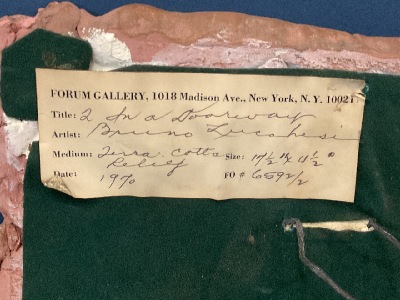 FORUM GALLERY, 1018 Madison Ave., New York, N. Y. 10021
Title: 2 In a Doorway
Artist: Bruno Lucchesi
Medium: Terra Cotta Size: 17½ x 11½ "
Relief
Date: 1970 FO # 6592/2